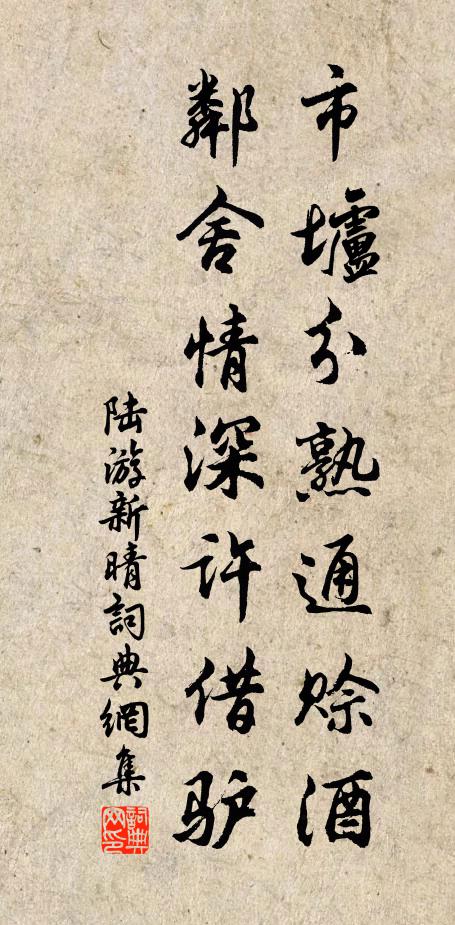 市壚分熟通赊酒
鄰舍情深許借驴
陆游新晴詞典網集
詞典网印